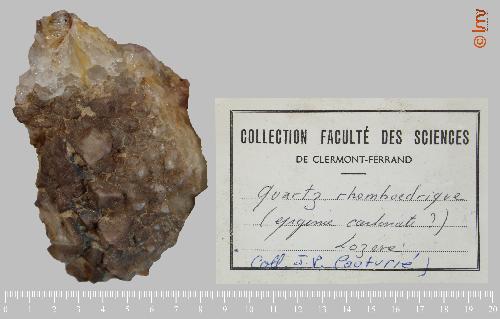 © lmv
COLLECTION FACULTÉ DES SCIENCES
DE CLERMONT-FERRAND
quartz rhomboedrique
(epigenie carbonate ?)
Lozère
(Coll. J.P. Couturié)
0 1 2 3 4 5 6 7 8 9 10 11 12 13 14 15 16 17 18 19 20